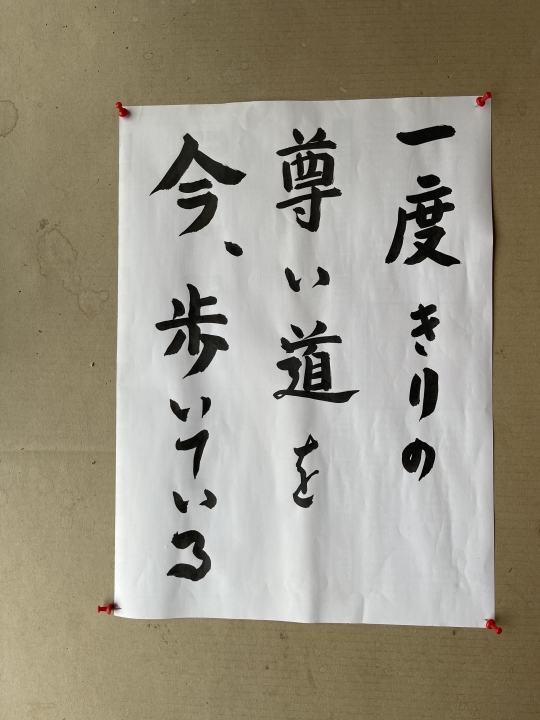 一度きりの
尊い道を
今、歩いている